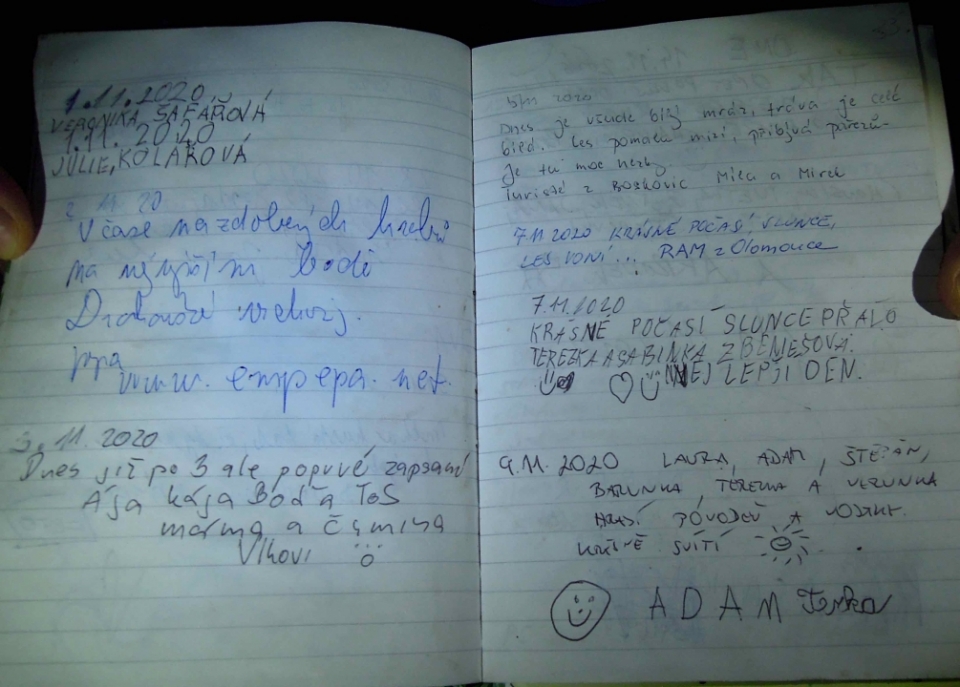 1.11.2020
VERONIKA ŠAFÁŘOVÁ
1.11. 2020
JULIE, KOLÁŘOVÁ
2. 11. 20
V čase nazdobených hrobů
na nejvyšším bodě
Drahanské vrchov.
pepa
www.empepa.net.
3. 11. 2020
Dnes již po 3 ale poprvé zapsaní
Ája kája Boďa ToS
mamka a
Vlkovi
5/11 2020
Dnes je všude bílý mráz, tráva je celá
bílá. Les pomalu mizí, přibývá pařezů.
Je tu moc hezky
Turisté z Boskovic Mila a Mirek
7.11 2020 KRÁSNÉ POČASÍ, SLUNCE,
LES VONÍ... RAM z Olomouce
7.11.2020
KRASNÉ POČASÍ SLUNCE PŘÁLO
TEREZKA A SABINKA Z BENEŠOVA.
NEJLEPŠÍ DEN.
9.11. 2020 LAURA, ADAM, ŠTĚPÁN,
BARUNKA, TEREZKA A VERUNKA
SVÍTÍ
ADAM Terka